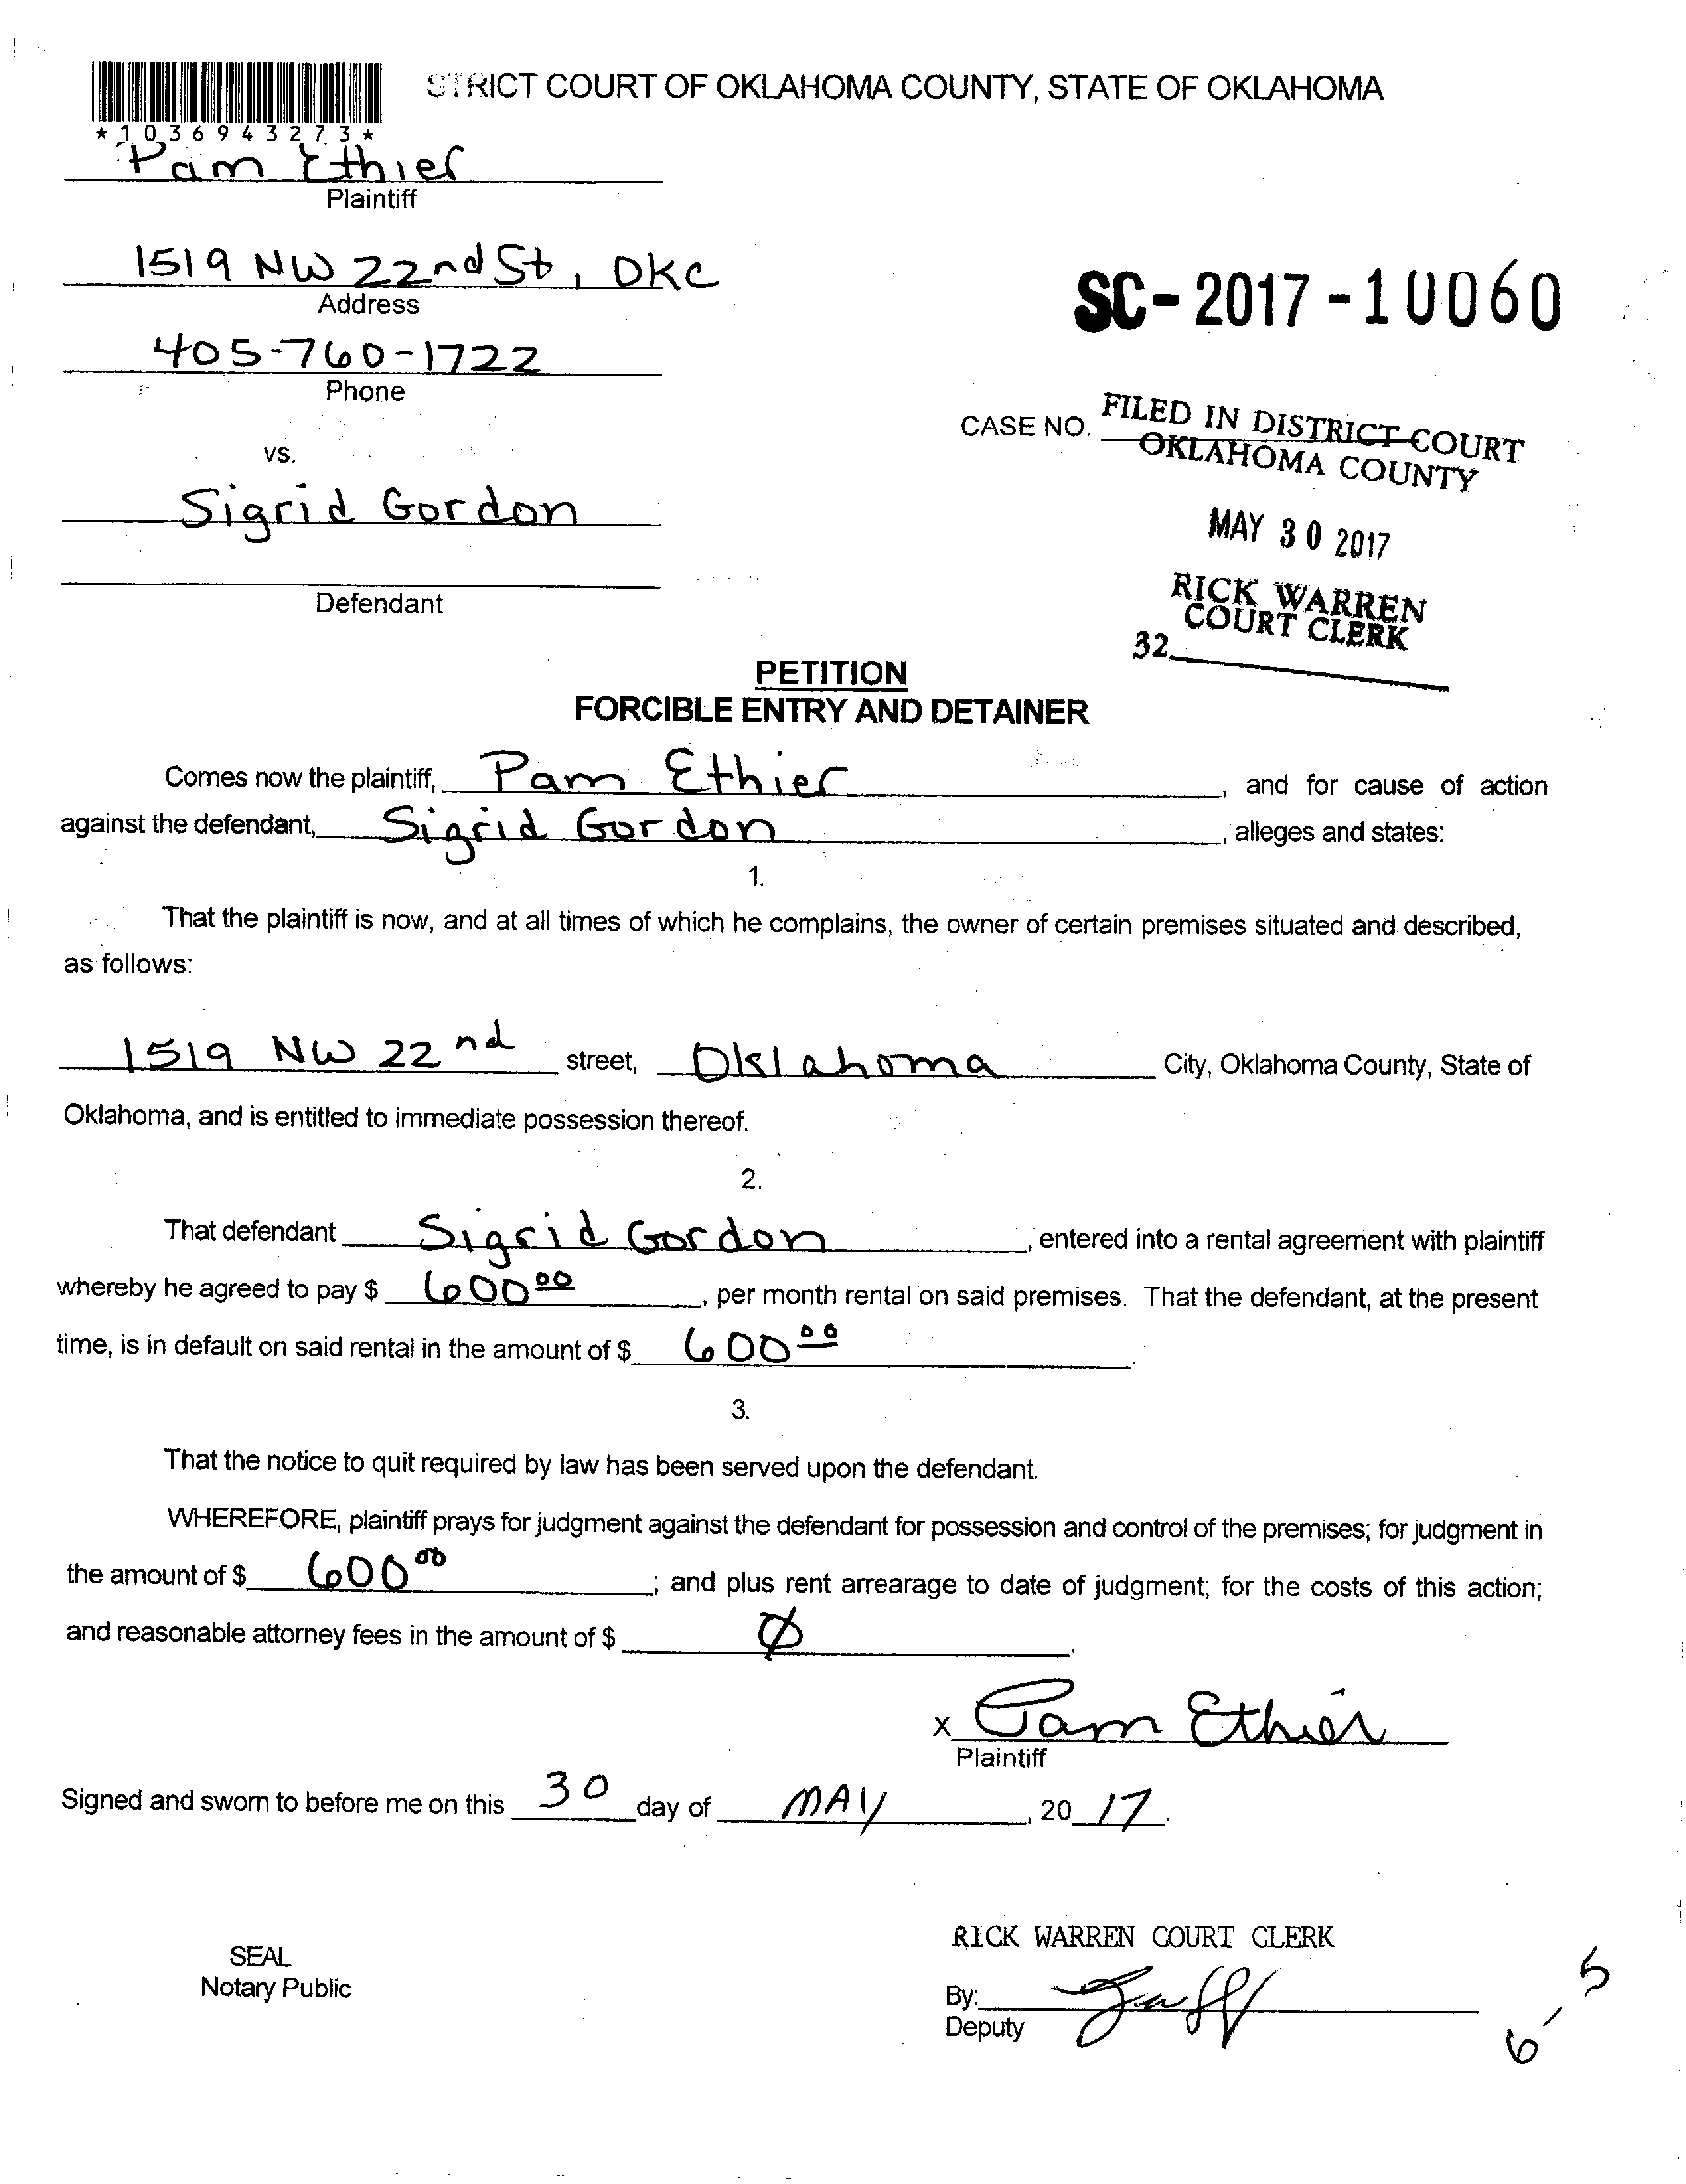 STRICT COURT OF OKLAHOMA COUNTY, STATE OF OKLAHOMA
*1036943273*
Pam Ethier
Plaintiff
1519 NW 22nd St, OKC
Address
SC-2017-10060
405-760-1722
Phone
CASE NO.
FILED IN DISTRICT COURT
OKLAHOMA COUNTY
vs.
Sigrid Gordon
MAY 30 2017
Defendant
RICK WARREN
COURT CLERK
32
PETITION
FORCIBLE ENTRY AND DETAINER
Comes now the plaintiff, Pam Ethier, and for cause of action
against the defendant, Sigrid Gordon, alleges and states:
1.
That the plaintiff is now, and at all times of which he complains, the owner of certain premises situated and described,
as follows:
1519 NW 22nd street, Oklahoma City, Oklahoma County, State of
Oklahoma, and is entitled to immediate possession thereof.
2.
That defendant Sigrid Gordon, entered into a rental agreement with plaintiff
whereby he agreed to pay $ 600.00, per month rental on said premises. That the defendant, at the present
time, is in default on said rental in the amount of $ 600.00.
3.
That the notice to quit required by law has been served upon the defendant.
WHEREFORE, plaintiff prays for judgment against the defendant for possession and control of the premises; for judgment in
the amount of $ 600.00; and plus rent arrearage to date of judgment; for the costs of this action;
and reasonable attorney fees in the amount of $ Ø.
x Pam Ethier
Plaintiff
Signed and sworn to before me on this 30 day of MAY, 20 17.
RICK WARREN COURT CLERK
SEAL
Notary Public
By:
Deputy
6-5